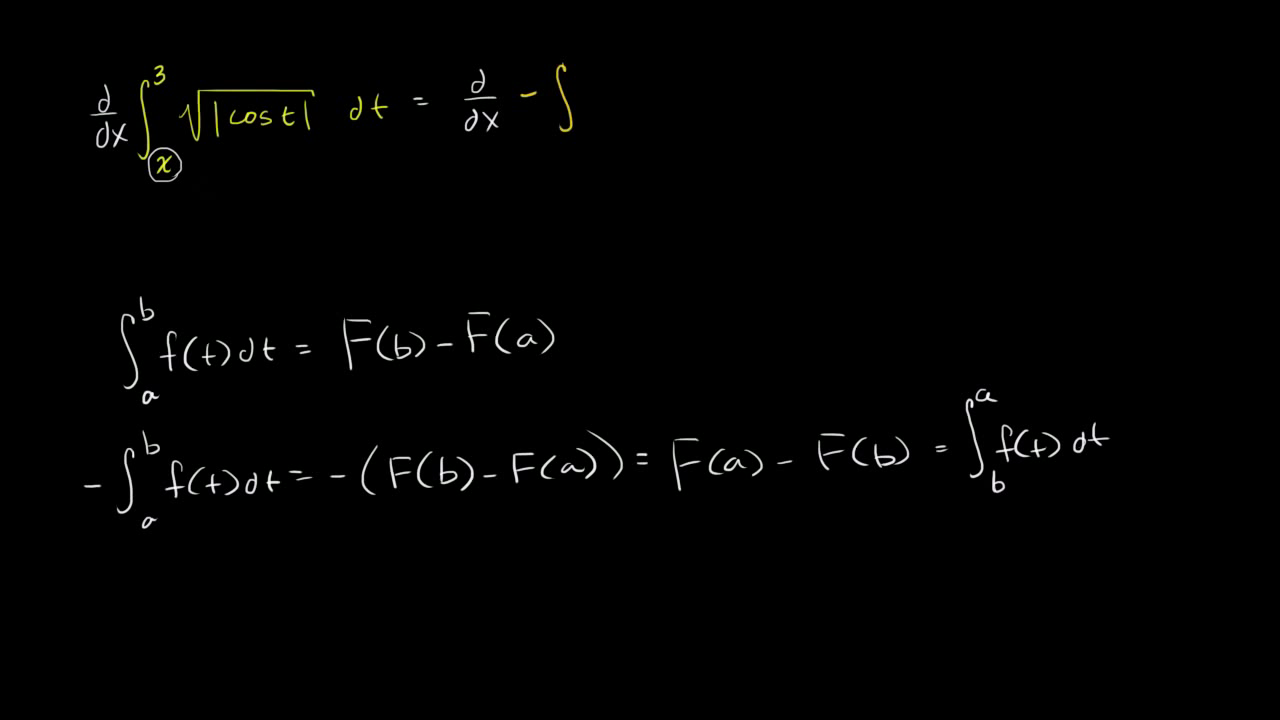 d/dx ∫_x^3 √|cos t| dt = d/dx - ∫
∫_a^b f(t) dt = F(b) - F(a)
- ∫_a^b f(t) dt = - (F(b) - F(a)) = F(a) - F(b) = ∫_b^a f(t) dt